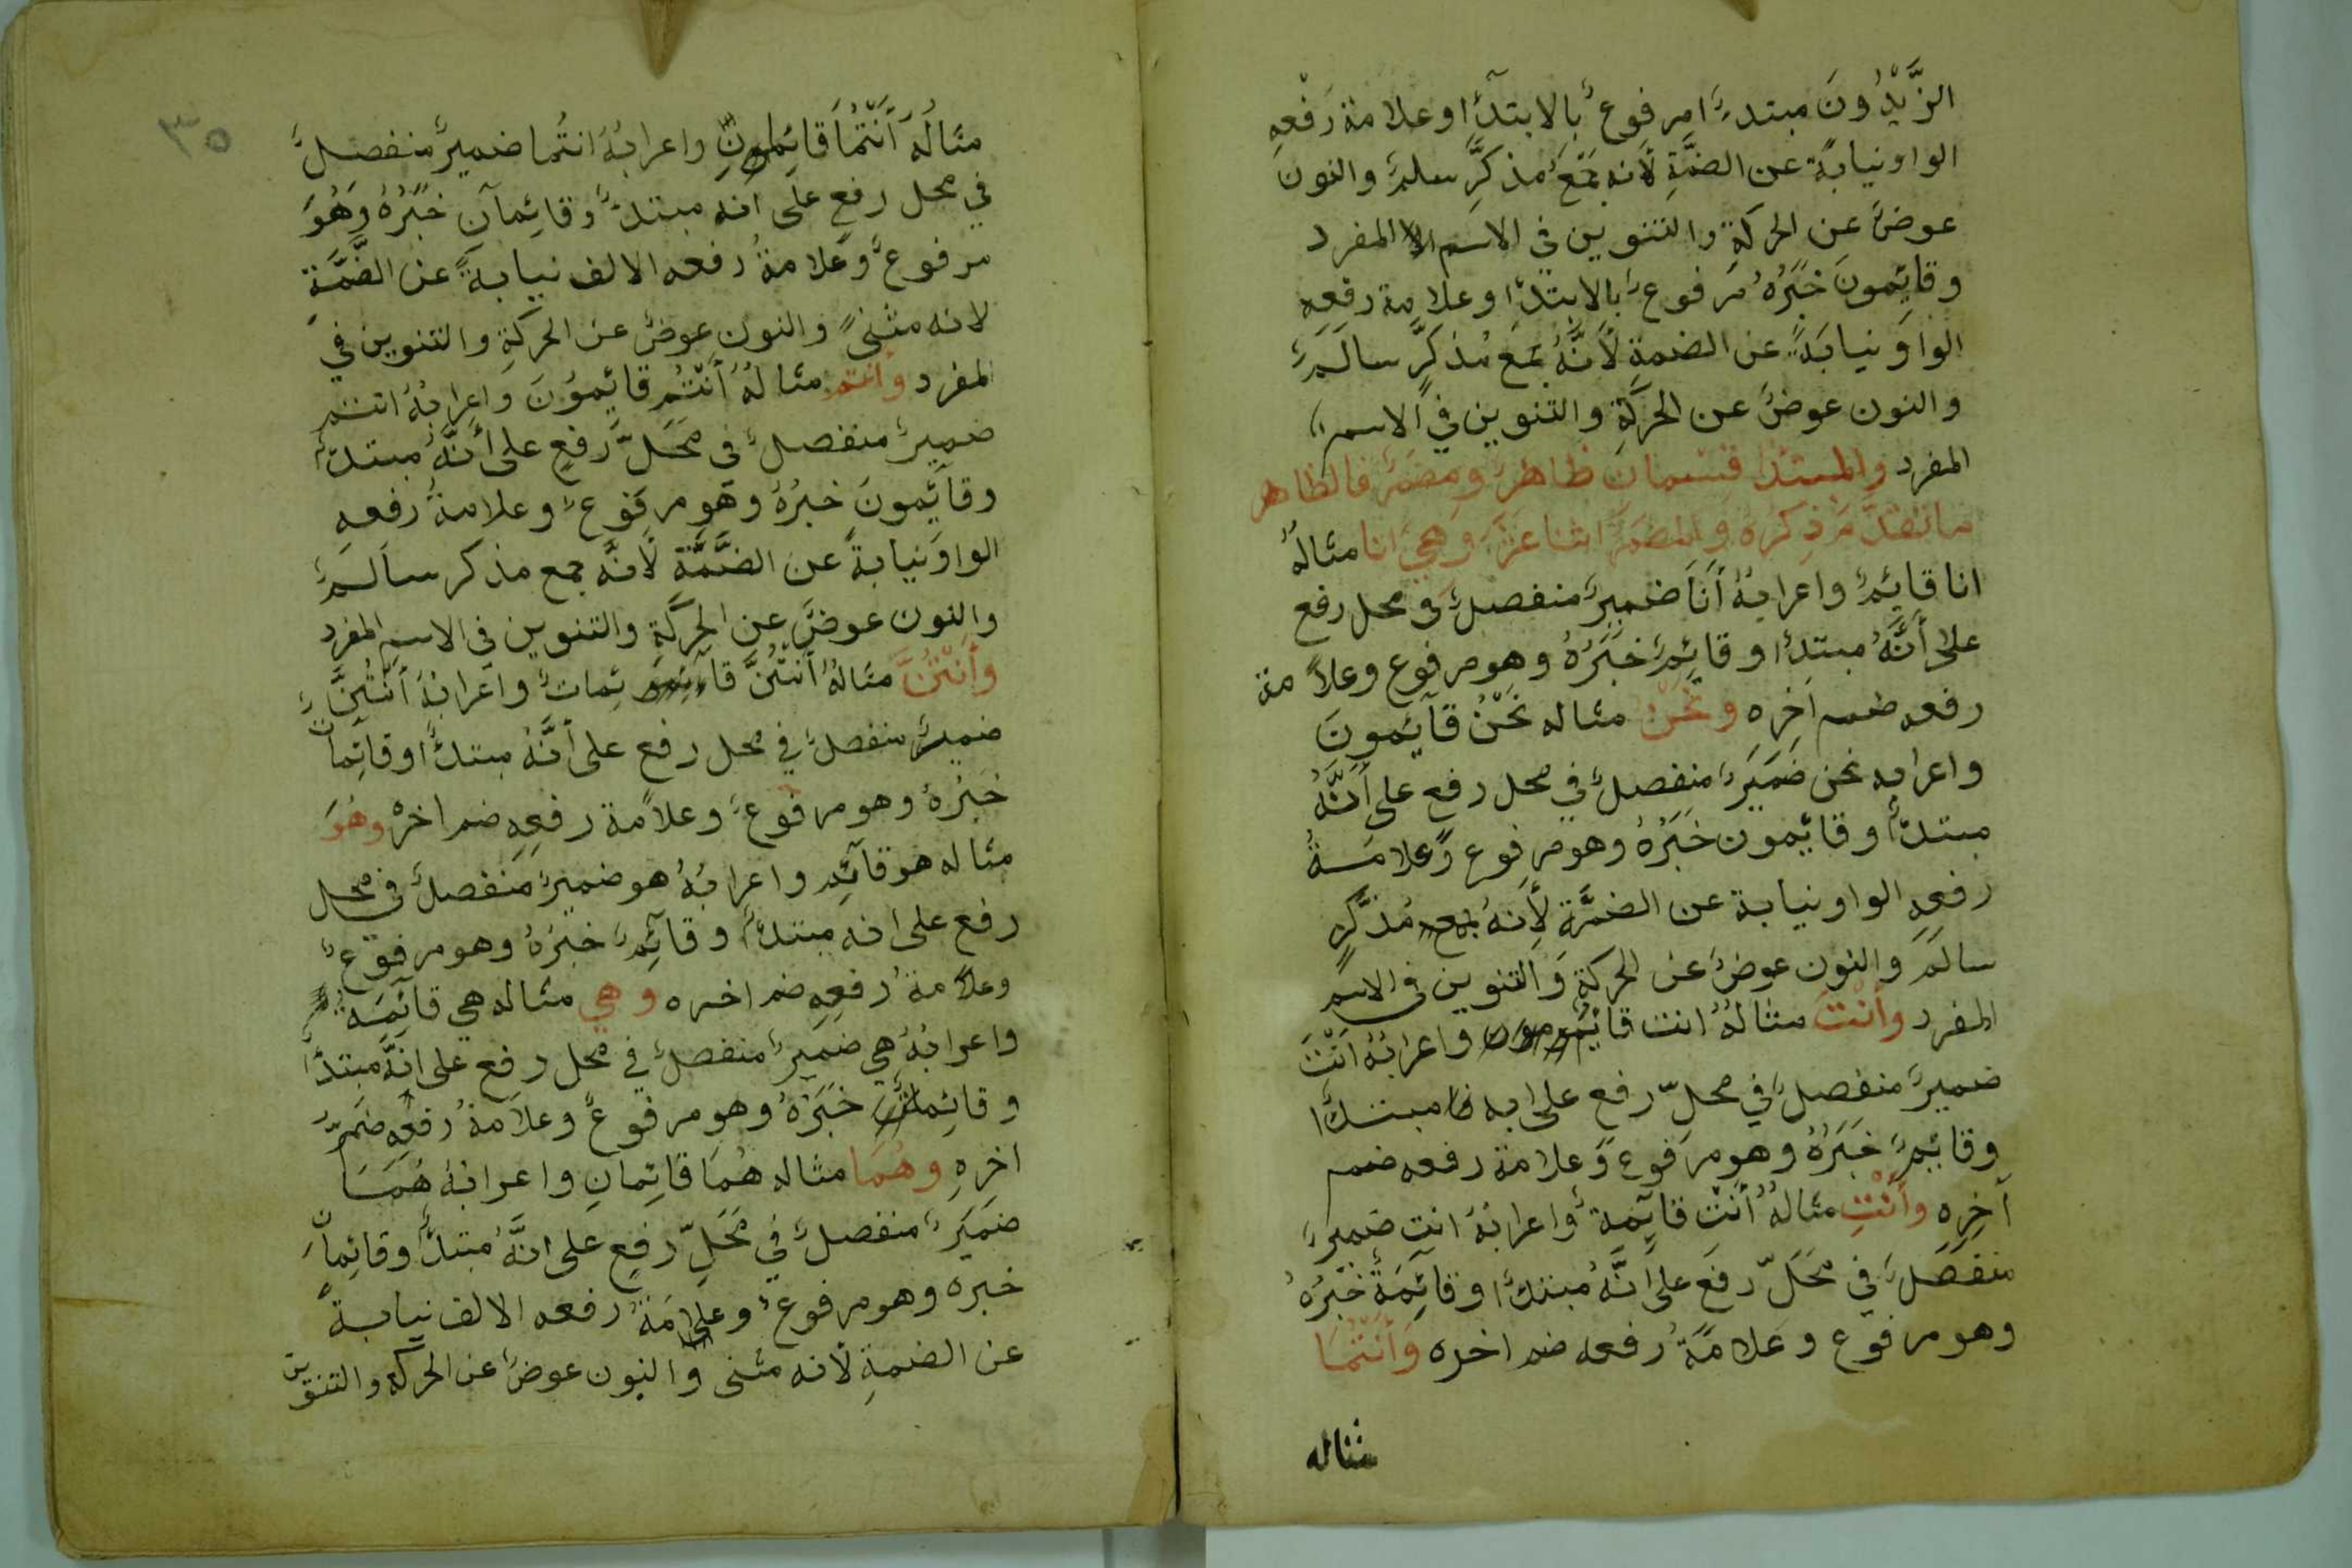 الزَّيْدُونَ مبتدءٌ امرفوعٌ بالابتدأ وعلامة رَفْعِهِ
الواو نيابةً عن الضمَّةِ لأنه جَمْعُ مذكرٍ سلمٌ والنون
عوضٌ عن الحركةِ والتنوين في الاسم المفرد
وقايِمونَ خَبَرُهُ مرفوعٌ بالابتدأ وعلامة رفعه
الواوَ نيابَةً عن الضمةِ لأَنَّهُ جمَع مُذكرٍ سالمٌ
والنون عوضٌ عن الحركةِ والتنوين في الاسم
المفرد والمبتدا قسمان ظاهرٌ ومضمرٌ فالظاهر
ماتقدَّم ذِكرُهُ والمضمرُ اثنا عشر وهي انا مثالهُ
انا قايِمٌ واعرابهُ أَنَا ضميرٌ منفصلٌ في محل رفع
على أنَّهُ مبتدأ وقايِمٌ خَبَرُهُ وهو مرفوع وعلامة
رفعه ضم اخره ونَحْنُ مثاله نَحْنُ قآيِمونَ
واعرابه نحن ضميرٌ منفصلٌ في محل رفع على أنَّهُ
مبتدأ وقايمون خَبَرُهُ وهو مرفوع وعلامةُ
رفعهِ الواو نيابة عن الضمَّة لأنهُ جمع مُذكَّرٍ
سالمَ والنون عوضٌ عن الحركةِ والتنوين في الاسم
المفرد وأَنْتَ مثالهُ انت قايِم واعرابهُ انْتَ
ضميرٌ منفصلٌ في محلّ رفع على انه مبتدأ
وقايِمٌ خَبَرُهُ وهو مرفوع وعلامة رفعه ضم
آخِرِهِ وأَنْتِ مثالهُ أَنْتِ قايِمةٌ واعرابهُ انتِ ضميرٌ
منفصلٌ في محَلّ رفع على أنَّهُ مبتدأ وقايِمَةٌ خَبَرُهُ
وهو مرفوع وعلامَةُ رفعه ضم اخره وأَنْتُمَا
مثاله
٣٥
مثالهُ أَنْتُمَا قائِمان واعرابهُ انتُما ضميرٌ منفصلٌ
في محل رفعٍ على انه مبتدأ وقائِمآنِ خَبَرُهُ وَهُوَ
مرفوعٌ وعلامةُ رفعه الالف نيابةً عن الضَّمَّةِ
لانه مثنىً والنون عوضٌ عن الحركةِ والتنوين في
المفرد وأنتم مثالهُ أَنْتُم قائِمُونَ واعرابهُ انتم
ضميرٌ منفصلٌ في محَلّ رَفعٍ على أنَّهُ مبتدأ
وقآيِمونَ خبرُهُ وهو مرفوعٌ وعلامةُ رفعه
الواوَ نيابةً عن الضمَّةِ لأنَّه جمع مذكر سالمٌ
والنون عوضٌ عن الحركَةِ والتنوين في الاسم المفرد
وأَنْتُنَّ مثالهُ أَنْتُنَّ قائِماتٌ واعرابهُ أَنْتُنَّ
ضميرٌ منفصلٌ في محل رفع على أنَّهُ مبتدأ وقائِمات
خَبَرُهُ وهو مرفوعٌ وعلامة رفعِهِ ضم اخرهُ وهُوَ
مثاله هو قآئِم واعرابهُ هو ضميرٌ منفصلٌ في محل
رفع على انه مبتدأ وقآئِمٌ خبَرُهُ وهو مرفوعٌ
وعلامةُ رفعِهِ ضم اخره وهي مثاله هي قائِمَةٌ
واعرابهُ هي ضميرٌ منفصلٌ في محل رفع على انَّه مبتدأ
وقائِمة خَبَرُهُ وهو مرفوعٌ وعلامةُ رفعِهِ ضمُّ
اخرِهِ وهُمَا مثاله هُمَا قائِمانِ واعرابهُ هُمَا
ضميرٌ منفصلٌ في محَلّ رفعٍ على انَّهُ مبتدأ وقائِمان
خبره وهو مرفوعٌ وعلامَةُ رفعه الالف نيابةً
عن الضمةِ لأنه مثنى والنون عوضٌ عن الحركة والتنوين